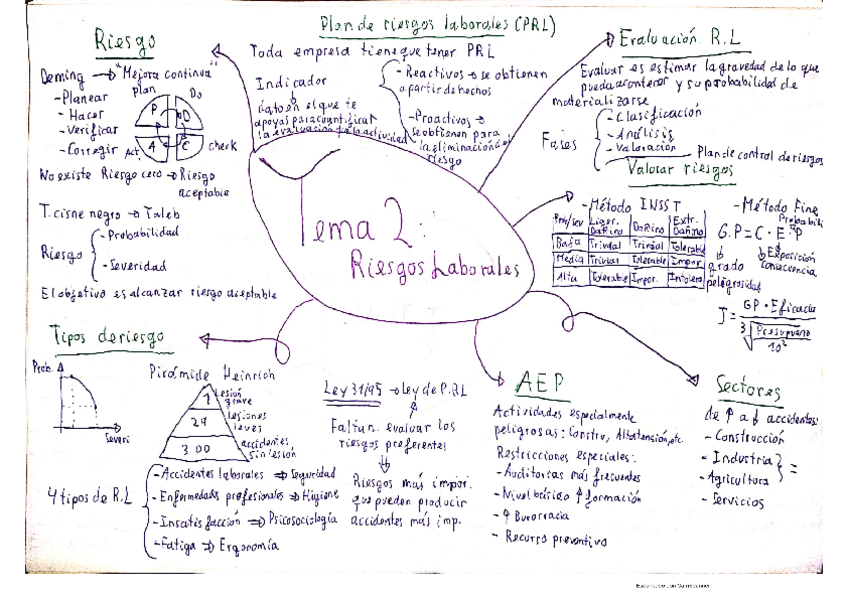 Plan de riesgos laborales (PRL)
Toda empresa tiene que tener PRL
Indicador
dato en el que te
apoyas para cuantificar
la evaluación de la actividad
- Reactivos → se obtienen
a partir de hechos
- Proactivos →
se obtienen para
la eliminación del
riesgo
Riesgo
Deming → "Mejora continua"
- Planear
- Hacer
- Verificar
- Corregir
plan
Do
P
D
A
C
Act.
check
No existe Riesgo cero → Riesgo
aceptable
T. cisne negro → Taleb
Riesgo
- Probabilidad
- Severidad
El objetivo es alcanzar riesgo aceptable
Tema 2:
Riesgos Laborales
Evaluación R.L
Evaluar es estimar la gravedad de lo que
pueda acontecer y su probabilidad de
materializarse
Fases
- Clasificación
- Análisis
- Valoración
Plan de control de riesgos
Valorar riesgos
- Método INSST
Prob/sev Liger. Dañino Dañino Extr. Dañino
Baja Trivial Trivial Tolerable
Media Trivial Tolerable Impor.
Alta Tolerable Impor. Intolera
- Método Fine
Probabili
G.P = C · E · P
grado
peligrosidad
Exposición
consecuencia
J = GP · Eficacia
3√ Presupuesto
10²
Tipos de riesgo
Prob.
Severi
Pirámide Heinrich
1
Lesión
grave
29
lesiones
leves
300
accidentes
sin lesión
4 tipos de R.L
- Accidentes laborales ⇒ Seguridad
- Enfermedades profesionales → Higiene
- Insatisfacción ⇒ Psicosociología
- Fatiga ⇒ Ergonomía
Ley 31/95 → Ley de P.RL
evaluar los
riesgos preferentes
Riesgos más impor.
que pueden producir
accidentes más imp.
AEP
Actividades especialmente
peligrosas: Constru, Alta tensión, etc.
Restricciones especiales:
- Auditorias más frecuentes
- Nivel básico ↑ formación
- ↑ Burocracia
- Recurso preventivo
Sectores
de ↑ a ↓ accidentes:
- Construcción
- Industria
- Agricultura
=
- Servicios
Escaneado con CamScanner